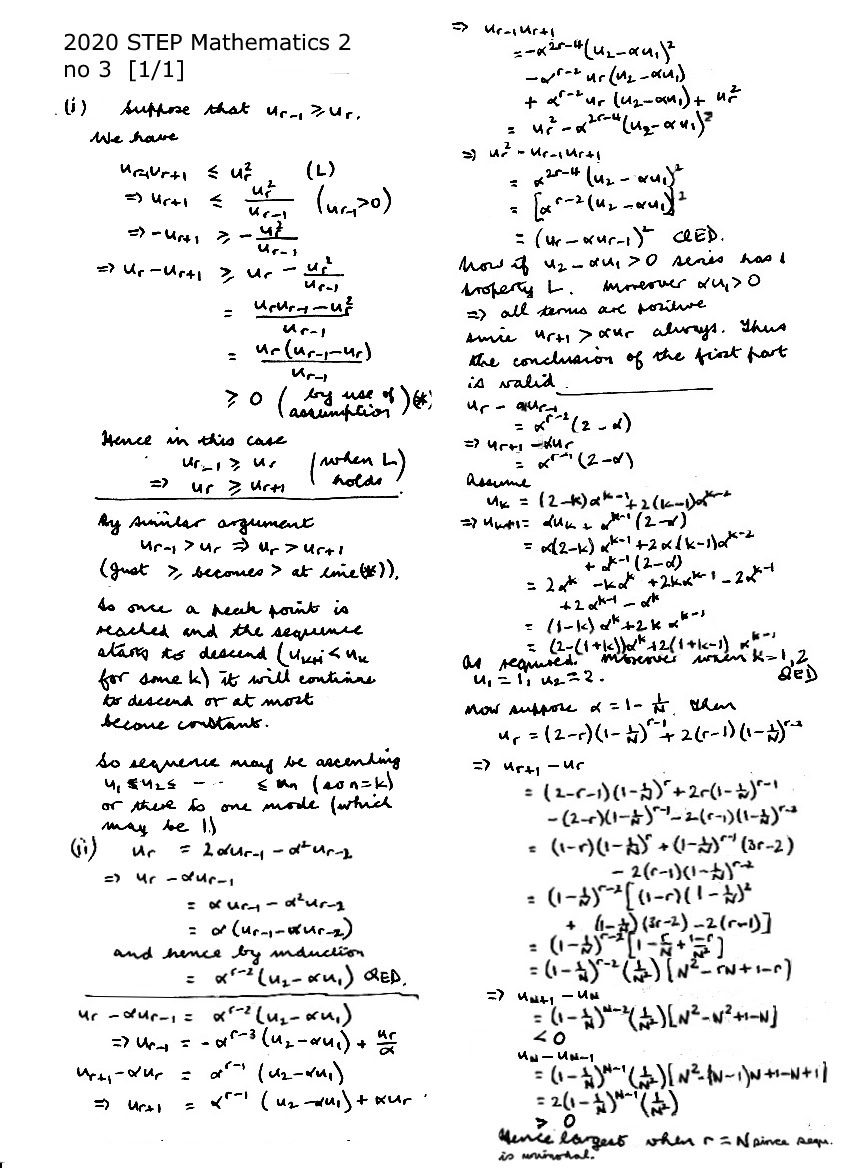 2020 STEP Mathematics 2
no 3 [1/1]
(i) Suppose that u_{r-1} ≥ u_r.
We have
u_{r-1}u_{r+1} ≤ u_r^2 (L)
⇒ u_{r+1} ≤ u_r^2/u_{r-1} (u_{r-1}>0)
⇒ -u_{r+1} ≥ -u_r^2/u_{r-1}
⇒ u_r - u_{r+1} ≥ u_r - u_r^2/u_{r-1}
= (u_r u_{r-1} - u_r^2)/u_{r-1}
= u_r(u_{r-1} - u_r)/u_{r-1}
≥ 0 (by use of assumption) (*)
Hence in this case
u_{r-1} ≥ u_r (when L
⇒ u_r ≥ u_{r+1} holds)
By similar argument
u_{r-1} > u_r ⇒ u_r > u_{r+1}
(just ≥ becomes > at line (*)).
So once a peak point is
reached and the sequence
starts to descend (u_{k+1} < u_k
for some k) it will continue
to descend or at most
become constant.
So sequence may be ascending
u_1 ≤ u_2 ≤ - - - ≤ u_n (so n=k)
or there is one mode (which
may be 1.)
(ii) u_r = 2αu_{r-1} - α^2 u_{r-2}
⇒ u_r - αu_{r-1}
= αu_{r-1} - α^2 u_{r-2}
= α(u_{r-1} - αu_{r-2})
and hence by induction
= α^{r-2}(u_2 - αu_1) QED.
u_r - αu_{r-1} = α^{r-2}(u_2 - αu_1)
⇒ u_{r-1} = -α^{r-3}(u_2 - αu_1) + u_r/α
u_{r+1} - αu_r = α^{r-1}(u_2 - αu_1)
⇒ u_{r+1} = α^{r-1}(u_2 - αu_1) + αu_r
⇒ u_{r-1}u_{r+1}
= -α^{2r-4}(u_2 - αu_1)^2
- α^{r-2} u_r(u_2 - αu_1)
+ α^{r-2} u_r(u_2 - αu_1) + u_r^2
= u_r^2 - α^{2r-4}(u_2 - αu_1)^2
⇒ u_r^2 - u_{r-1}u_{r+1}
= α^{2r-4}(u_2 - αu_1)^2
= [α^{r-2}(u_2 - αu_1)]^2
= (u_r - αu_{r-1})^2 QED.
Now if u_2 - αu_1 > 0 series has
property L. Moreover αu_1 > 0
⇒ all terms are positive
since u_{r+1} > αu_r always. Thus
the conclusion of the first part
is valid.
u_r - αu_{r-1}
= α^{r-2}(2-α)
⇒ u_{r+1} - αu_r
= α^{r-1}(2-α)
Assume
u_k = (2-k)α^{k-1} + 2(k-1)α^{k-2}
⇒ u_{k+1} = αu_k + α^{k-1}(2-α)
= α(2-k)α^{k-1} + 2α(k-1)α^{k-2}
+ α^{k-1}(2-α)
= 2α^k - kα^k + 2kα^{k-1} - 2α^{k-1}
+ 2α^{k-1} - α^k
= (1-k)α^k + 2kα^{k-1}
= (2-(1+k))α^k + 2(1+k-1)α^{k-1}
as required. Moreover when k=1,2
u_1 = 1, u_2 = 2. QED
Now suppose α = 1 - 1/N. Then
u_r = (2-r)(1-1/N)^{r-1} + 2(r-1)(1-1/N)^{r-2}
⇒ u_{r+1} - u_r
= (2-r-1)(1-1/N)^r + 2r(1-1/N)^{r-1}
- (2-r)(1-1/N)^{r-1} - 2(r-1)(1-1/N)^{r-2}
= (1-r)(1-1/N)^r + (1-1/N)^{r-1}(3r-2)
- 2(r-1)(1-1/N)^{r-2}
= (1-1/N)^{r-2}[(1-r)(1-1/N)^2
+ (1-1/N)(3r-2) - 2(r-1)]
= (1-1/N)^{r-2}[1 - r/N + (1-r)/N^2]
= (1-1/N)^{r-2}(1/N^2)[N^2 - rN + 1-r]
⇒ u_{N+1} - u_N
= (1-1/N)^{N-2}(1/N^2)[N^2 - N^2 + 1-N]
< 0
u_N - u_{N-1}
= (1-1/N)^{N-1}(1/N^2)[N^2-(N-1)N+1-N+1]
= 2(1-1/N)^{N-1}(1/N^2)
> 0
Hence largest when r = N since sequ.
is unimodal.